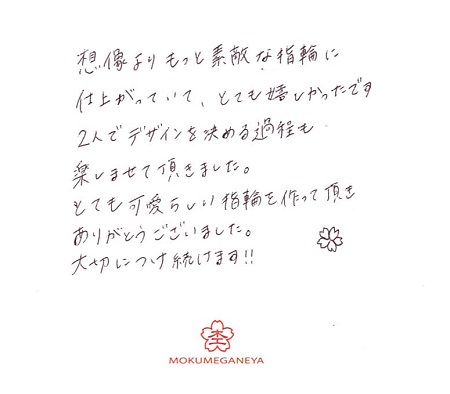 想像よりもっと素敵な指輪に
仕上がっていて、とても嬉しかったです
2人でデザインを決める過程も
楽しませて頂きました。
とても可愛らしい指輪を作って頂き
ありがとうございました。
大切につけ続けます!!
杢
MOKUMEGANEYA